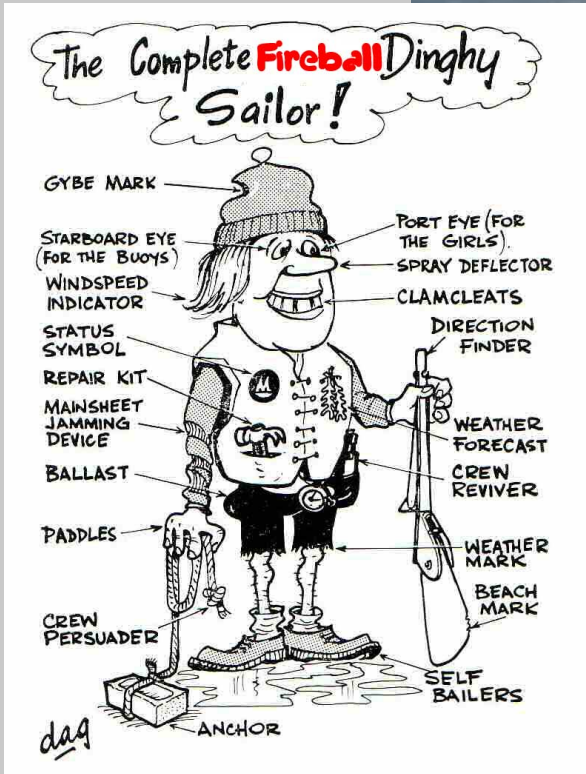 The Complete Fireball Dinghy
Sailor!
GYBE MARK
STARBOARD EYE
(FOR THE BUOYS)
WINDSPEED
INDICATOR
STATUS
SYMBOL
REPAIR KIT
MAINSHEET
JAMMING
DEVICE
BALLAST
PADDLES
CREW
PERSUADER
PORT EYE (FOR
THE GIRLS).
SPRAY DEFLECTOR
CLAMCLEATS
DIRECTION
FINDER
WEATHER
FORECAST
CREW
REVIVER
WEATHER
MARK
BEACH
MARK
SELF
BAILERS
ANCHOR
M
dag